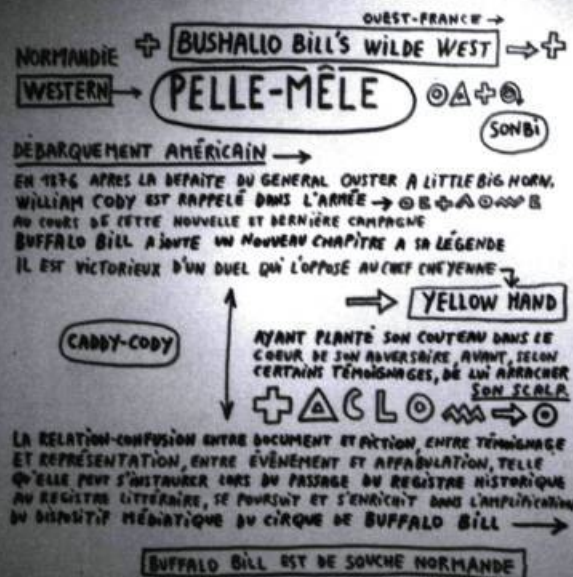 OUEST-FRANCE →
NORMANDIE
BUSHALLO BILL'S WILDE WEST
WESTERN →
PELLE-MÊLE
SONBI
DÉBARQUEMENT AMÉRICAIN →
EN 1876 APRES LA DEFAITE DU GENERAL OUSTER A LITTLE BIG HORN.
WILLIAM CODY EST RAPPELÉ DANS L'ARMÉE →
AU COURS DE CETTE NOUVELLE ET DERNIÈRE CAMPAGNE
BUFFALO BILL AJOUTE UN NOUVEAU CHAPITRE A SA LÉGENDE
IL EST VICTORIEUX D'UN DUEL QUI L'OPPOSE AU CHEF CHEYENNE
YELLOW HAND
CADDY-CODY
AYANT PLANTÉ SON COUTEAU DANS LE
COEUR DE SON ADVERSAIRE, AVANT, SELON
CERTAINS TÉMOIGNAGES, DE LUI ARRACHER
SON SCALP.
LA RELATION-CONFUSION ENTRE DOCUMENT ET FICTION, ENTRE TÉMOIGNAGE
ET REPRÉSENTATION, ENTRE ÉVÈNEMENT ET AFFABULATION, TELLE
QU'ELLE PEUT S'INSTAURER LORS DU PASSAGE DU REGISTRE HISTORIQUE
AU REGISTRE LITTÉRAIRE, SE POURSUIT ET S'ENRICHIT DANS L'AMPLIFICATION
DU DISPOSITIF MÉDIATIQUE DU CIRQUE DE BUFFALO BILL →
BUFFALO BILL EST DE SOUCHE NORMANDE